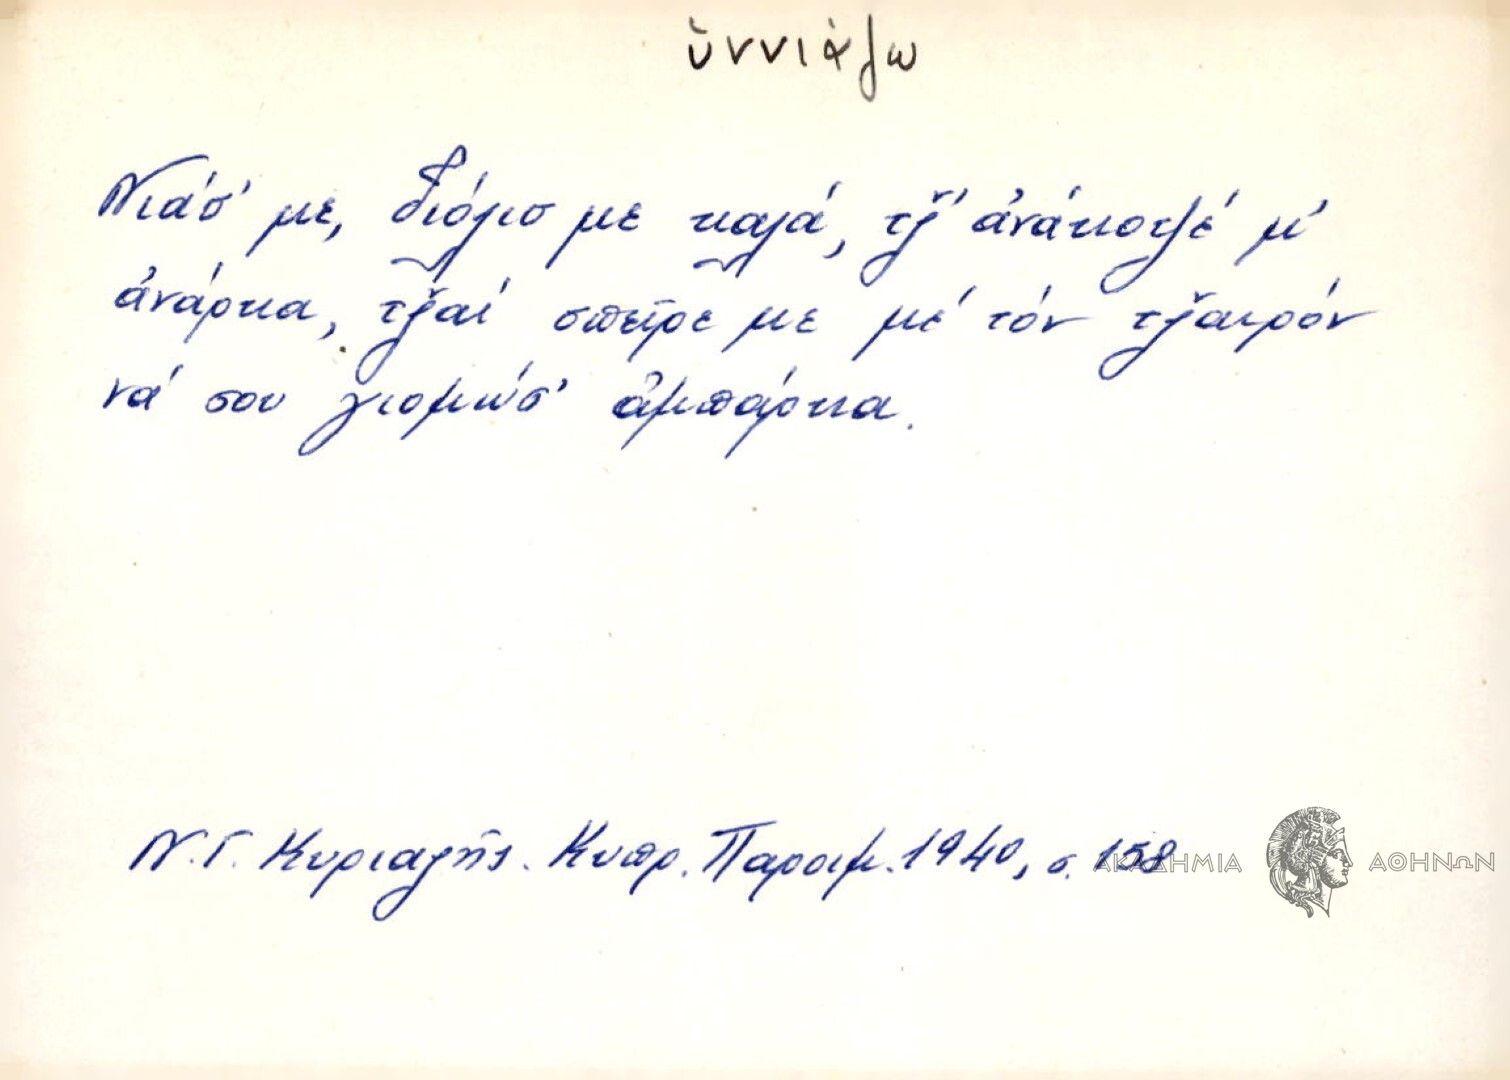 ὑννιάζω
Νιάσ' με, διόλισ με καλά, τζ̌' ἀνάκοτζ̌έ μ'
ἀνάρκα, τζ̌αί σπεῖρε με μέ τόν τζ̌αιρόν
νά σου γιομώσ' ἀμπάρκα.
Ν. Γ. Κυριαζῆς. Κυπρ. Παροιμ. 1940, σ. 158
ΑΚΑΔΗΜΙΑ ΑΘΗΝΩΝ